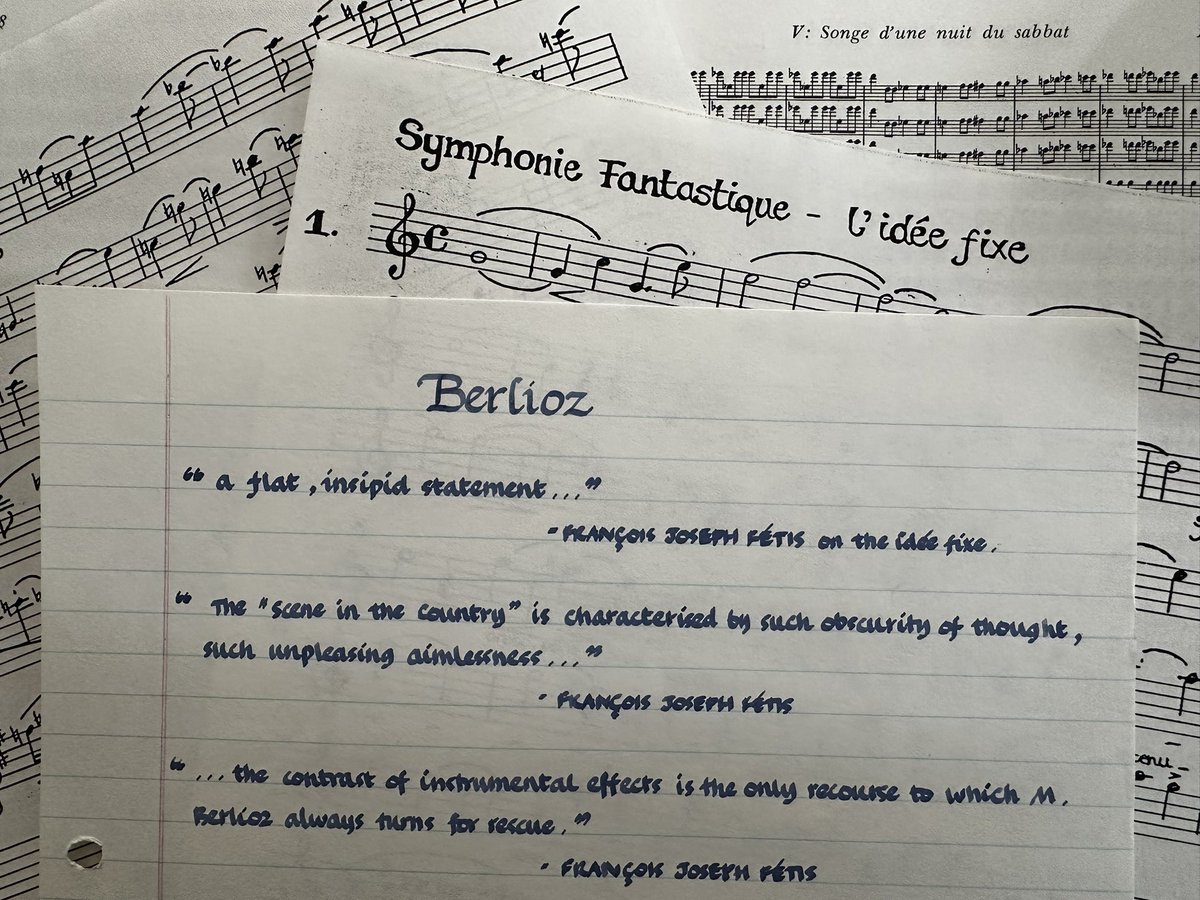 V: Songe d'une nuit du sabbat
Symphonie Fantastique - l'idée fixe
1.
Berlioz
“ a flat, insipid statement...”
- FRANÇOIS JOSEPH FÉTIS on the idée fixe.
“ The "scene in the country" is characterised by such obscurity of thought,
such unpleasing aimlessness...”
- FRANÇOIS JOSEPH FÉTIS
“ ... the contrast of instrumental effects is the only recourse to which M.
Berlioz always turns for rescue.”
- FRANÇOIS JOSEPH FÉTIS